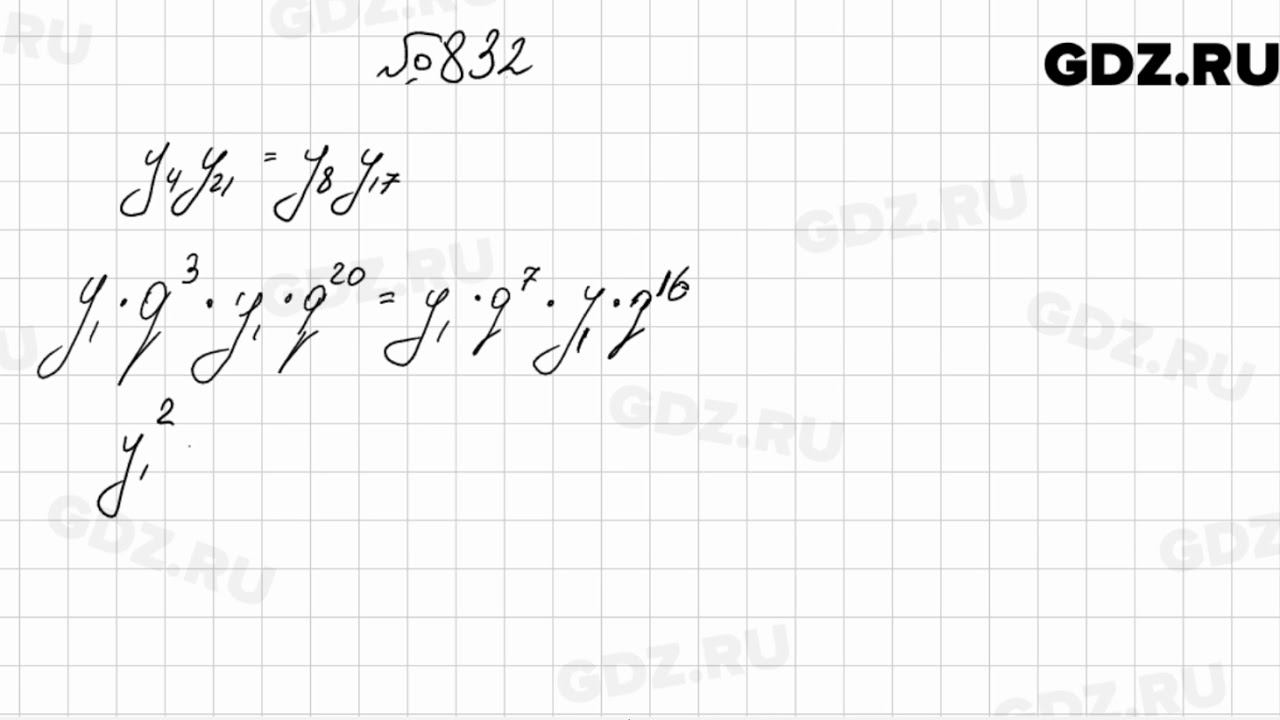 №832
GDZ.RU
y₄y₂₁ = y₈y₁₇
y₁·q³·y₁·q²⁰ = y₁·q⁷·y₁·q¹⁶
y₁²